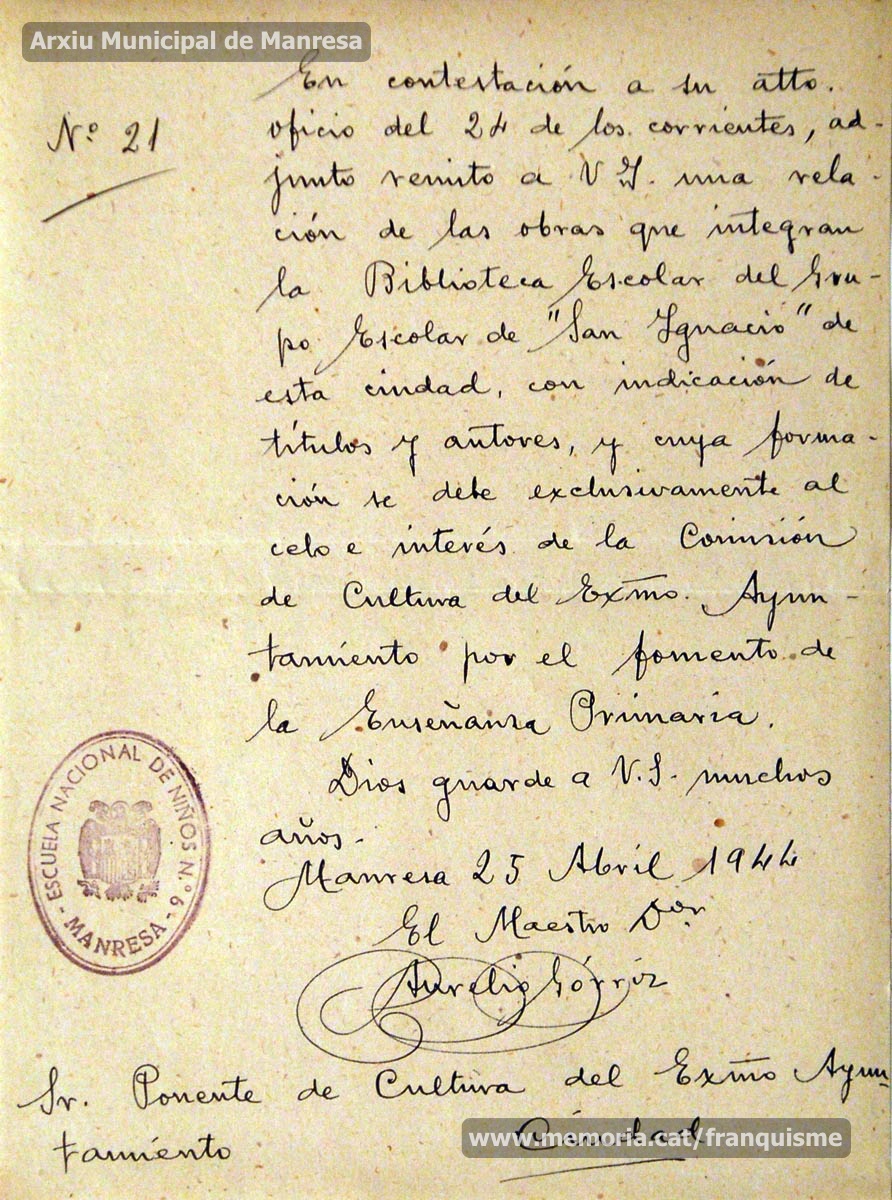 Arxiu Municipal de Manresa
Nº 21
En contestación a su atto.
oficio del 24 de los corrientes, ad-
junto remito a V.I. una rela-
ción de las obras que integran
la Biblioteca Escolar del Gru-
po Escolar de "San Ignacio" de
esta ciudad, con indicación de
títulos y autores, y cuya forma-
ción se debe exclusivamente al
celo e interés de la Comisión
de Cultura del Exmo. Ayun-
tamiento por el fomento de
la Enseñanza Primaria.
Dios guarde a V.S. muchos
años.
Manresa 25 Abril 1944
El Maestro Dor
Aurelio Górriz
- ESCUELA NACIONAL DE NIÑOS N.º 6 -
MANRESA
Sr. Ponente de Cultura del Exmo Ayun-
tamiento
Ciudad
www.memoria.cat/franquisme